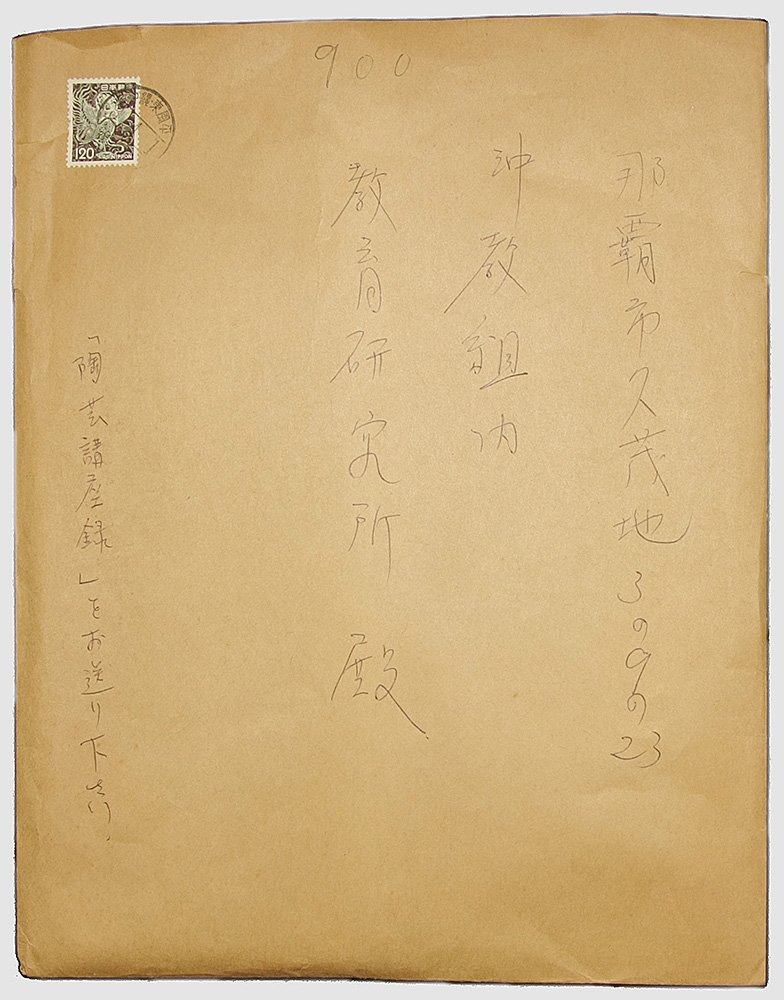 900
那覇市久茂地3の9の23
沖教組内
教育研究所 殿
「陶芸講座録」をお送り下さい.
日本郵便
120
NIPPON